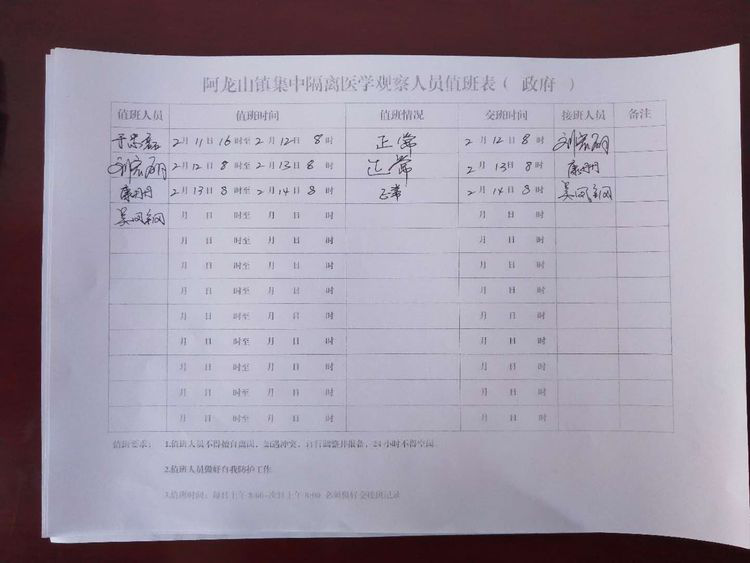 阿龙山镇集中隔离医学观察人员值班表（ 政府 ）
值班人员 值班时间 值班情况 交班时间 接班人员 备注
2月11日16时至2月12日8时 正常 2月12日8时 刘宏丽
刘宏丽 2月12日8时至2月13日8时 正常 2月13日8时 康丹丹
康丹丹 2月13日8时至2月14日8时 正常 2月14日8时
月 日 时至 月 日 时 月 日 时
月 日 时至 月 日 时 月 日 时
月 日 时至 月 日 时 月 日 时
月 日 时至 月 日 时 月 日 时
月 日 时至 月 日 时 月 日 时
月 日 时至 月 日 时 月 日 时
月 日 时至 月 日 时 月 日 时
月 日 时至 月 日 时 月 日 时
月 日 时至 月 日 时 月 日 时
值班要求： 1.值班人员不得擅自离岗，如遇冲突，自行调整并报备，24小时不得空岗。
2.值班人员做好自我防护工作
3.值班时间：每日上午8:00-次日上午8:00 必须做好交接班记录